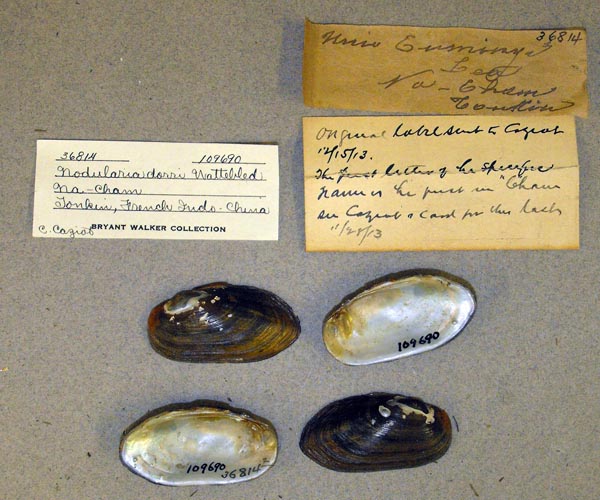 36814
Unio
Lea
Na-Cham
Tonkin
Original label sent to Caziot
12/15/13.
The first letter of the specific
name is the first in "Cham
see Caziot's card for this
11/28/13
36814 109690
Nodularia dorri Wattebled
Na-Cham
Tonkin, French Indo-China
C. Caziot BRYANT WALKER COLLECTION
109690
109690
36814